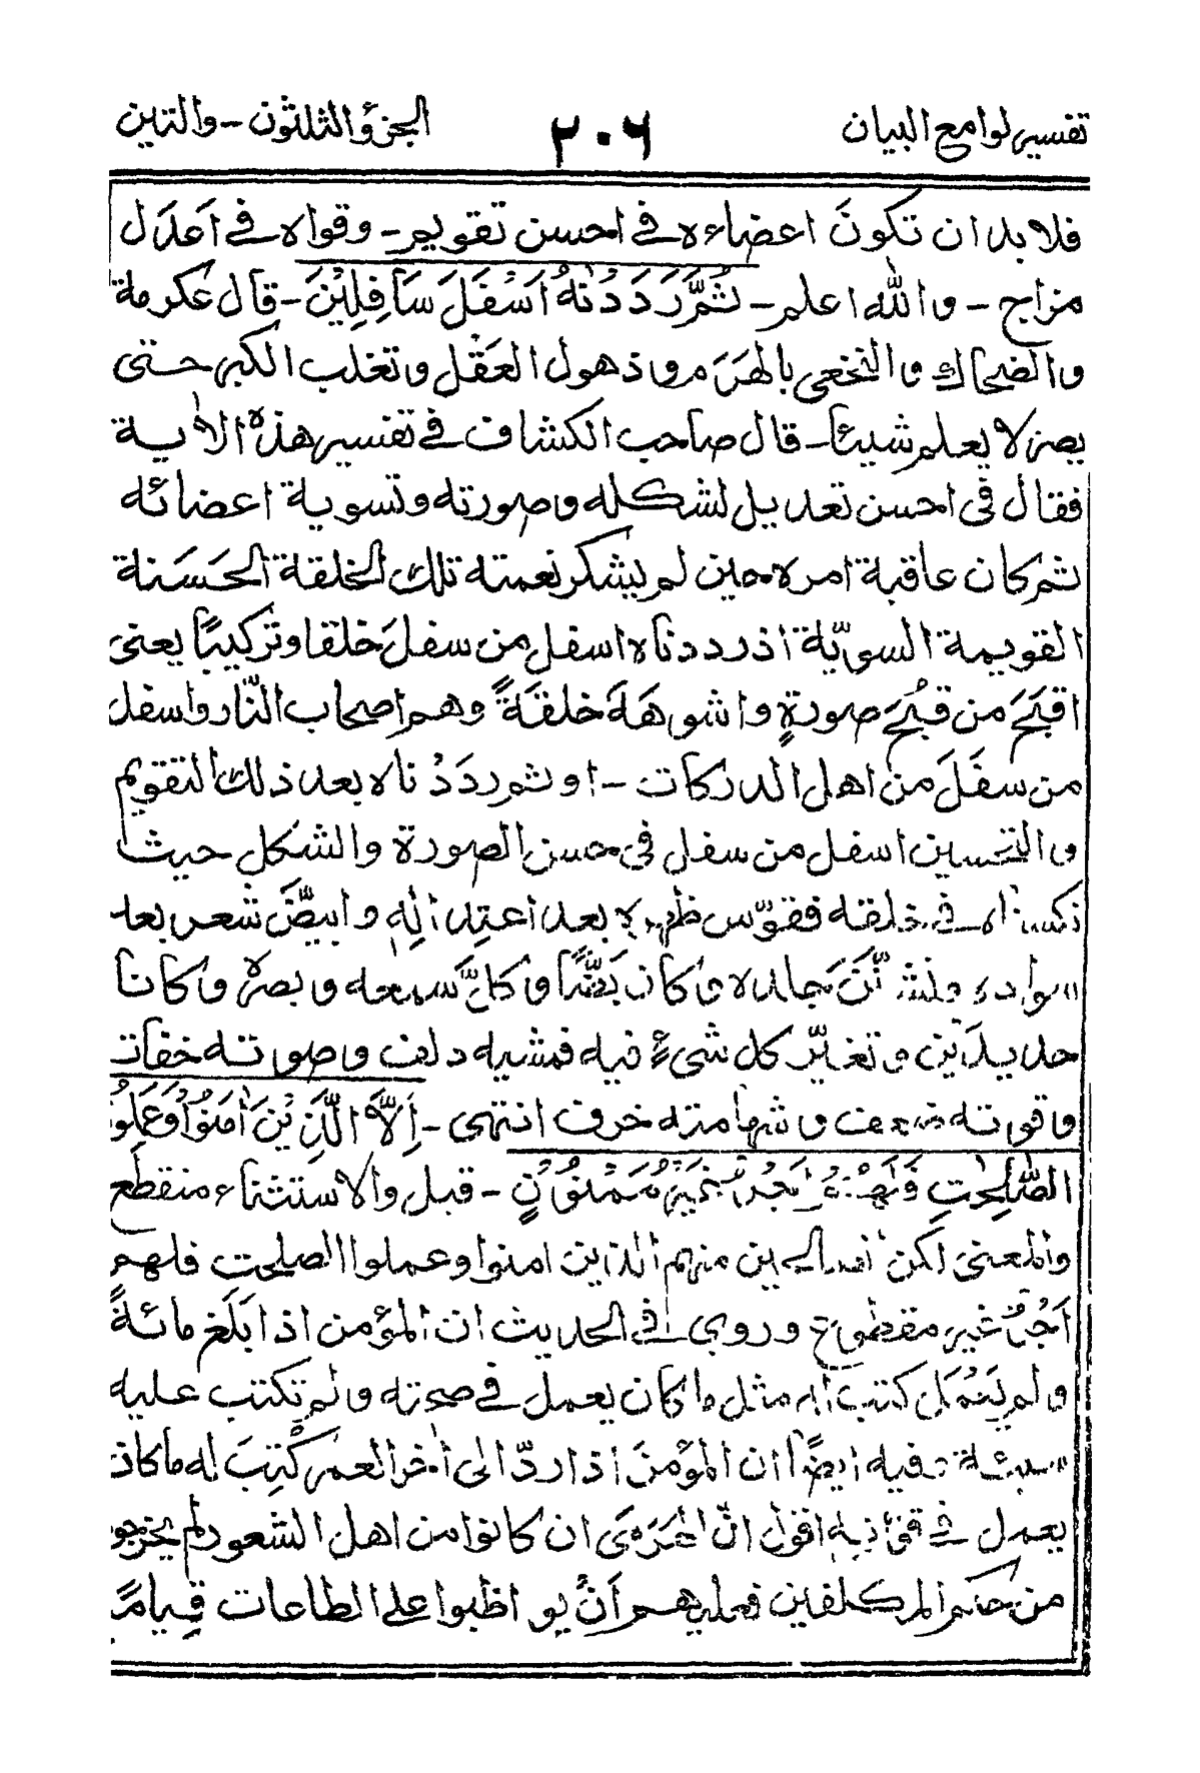 تفسير لوامع البيان ٢٠٦ الجزؤ الثلثون - والتين
فلا بد ان تكونَ اعضاءه في احسن تقويم - وقواه في اَعدَل
مزاج - والله اعلم - ثُمَّ رَدَدْنٰهُ اَسْفَلَ سَافِلِيْنَ - قال عكرمة
والضحاك والنخعي بالهَرَم وذهول العَقْل وتغلب الكبر حتى
يصر لا يعلم شيئا - قال صاحب الكشاف في تفسير هذه الاٰية
فقال في احسن تعديل لشكله وصورته وتسوية اعضائه
ثم كان عاقبة امره حين لم يشكر نعمته تلك الخلقة الحَسَنة
القويمة السويّة اذ رددناه اسفل من سفلَ خلقا وتركيبًا يعنى
اقبَحَ من قبُحَ صورةٍ واشوهَهَ خلقَةً وهم اصحاب النّار واسفل
من سفَلَ من اهل الدركات - او ثم ردَدْناه بعد ذلك التقويم
والتحسين اسفل من سفل في حسن الصورة والشكل حيث
نكسناه في خلقه فقوّس ظهره بعد اعتداله وابيضّ شعره بعد
سواده وتشنّن جلده وكان بَضًّا وكلّ سمعه وبصره وكانا
حديدَين وتغيّر كل شيءٍ فيه فمشيه دلف وصوته خفات
وقوته ضعف وشهامته خرف انتهى - اِلَّا الَّذِيْنَ اٰمَنُوْا وَعَمِلُوا
الصّٰلِحٰتِ فَلَهُمْ اَجْرٌ غَيْرُ مَمْنُوْنٍ - قيل والاستثناء منقطع
والمعنى لكن الصالحين منهم الذين امنوا وعملوا الصلحت فلهم
اَجْرٌ غير مقطوع وروى في الحديث ان المؤمن اذا بَلَغ مائةً
ولم يَعْمَل كتب له مثل ما كان يعمل في صحته ولم تكتب عليه
سيئة وفيه ايضًا ان المؤمنَ اذا ردّ الى اٰخر العمر كُتِبَ له ما كان
يعمل في قوّته اقول انّ الهَرَمٰى ان كانوا من اهل الشعور لم يخرجوا
من حكم المكلفين فعليهم اَنْ يواظبوا على الطاعات قيامًا